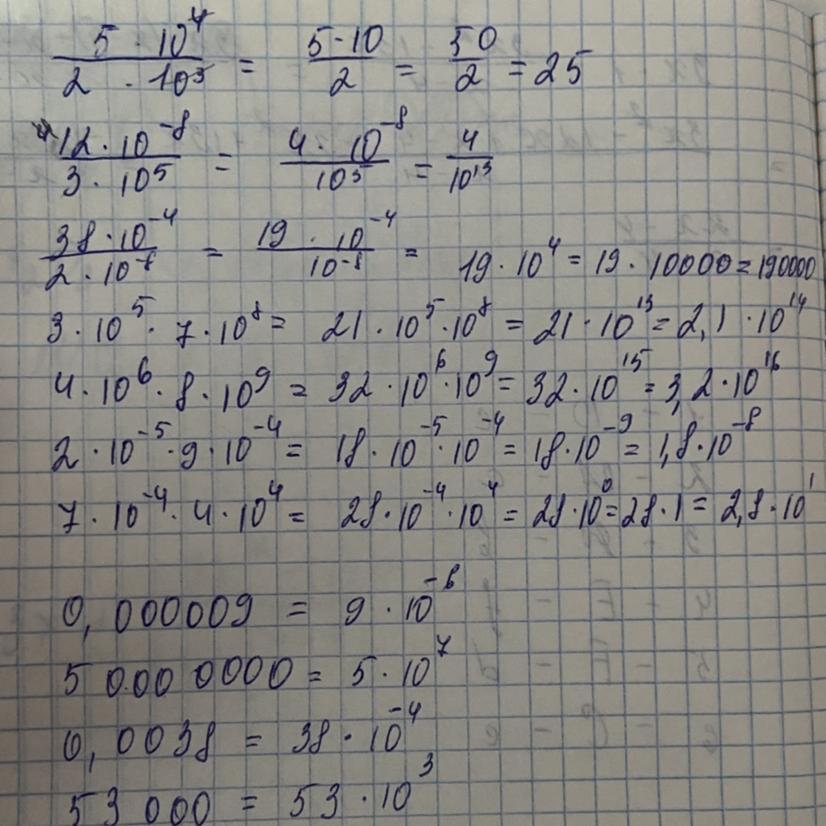 5 · 10⁴ / 2 · 10³ = 5·10 / 2 = 50 / 2 = 25
12 · 10⁻⁸ / 3 · 10⁵ = 4 · 10⁻⁸ / 10⁵ = 4 / 10¹³
38 · 10⁻⁴ / 2 · 10⁻⁸ = 19 · 10⁻⁴ / 10⁻⁸ = 19 · 10⁴ = 19 · 10000 = 190000
3 · 10⁵ · 7 · 10⁸ = 21 · 10⁵ · 10⁸ = 21 · 10¹³ = 2,1 · 10¹⁴
4 · 10⁶ · 8 · 10⁹ = 32 · 10⁶ · 10⁹ = 32 · 10¹⁵ = 3,2 · 10¹⁶
2 · 10⁻⁵ · 9 · 10⁻⁴ = 18 · 10⁻⁵ · 10⁻⁴ = 18 · 10⁻⁹ = 1,8 · 10⁻⁸
7 · 10⁻⁴ · 4 · 10⁴ = 28 · 10⁻⁴ · 10⁴ = 28 · 10⁰ = 28 · 1 = 2,8 · 10¹
0,000009 = 9 · 10⁻⁶
50000000 = 5 · 10⁷
0,0038 = 38 · 10⁻⁴
53000 = 53 · 10³